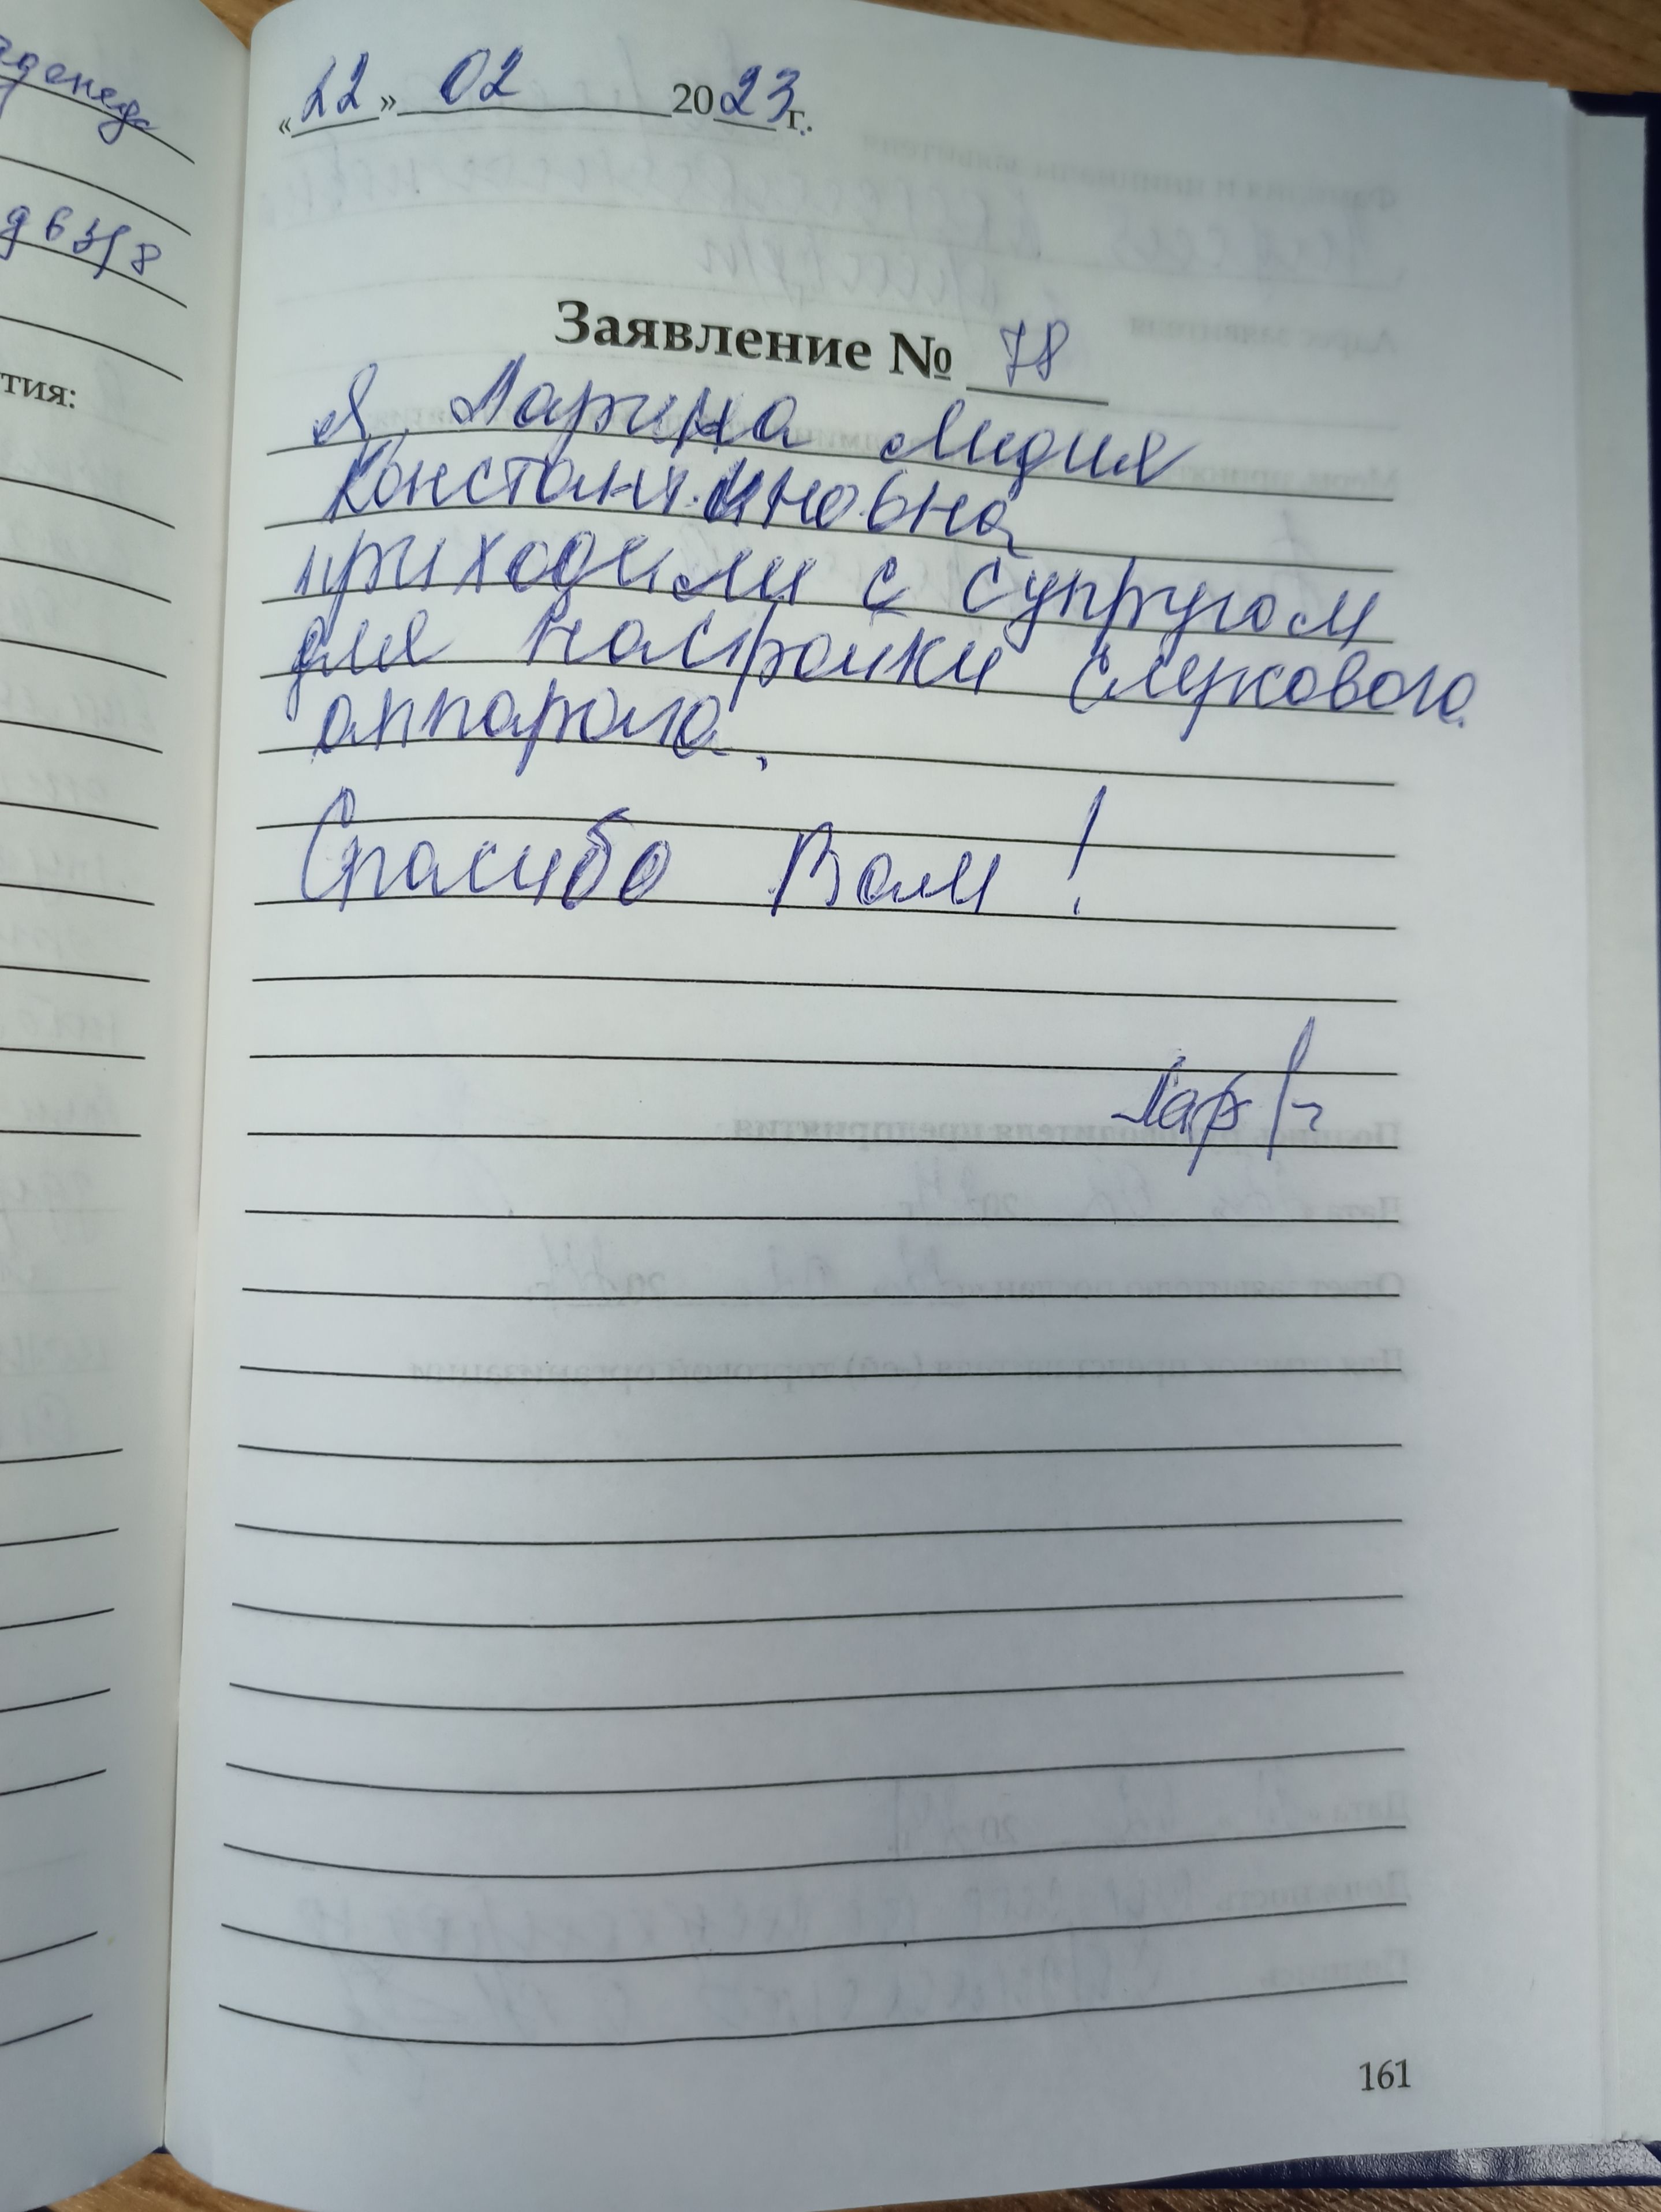 д 63/8
тия:
«22» 02 2023 г.
Заявление № 78
Я Ларина Лидия
Константиновна
приходили с супругом
для настройки слухового
аппарата.
Спасибо Вам!
Лар
161